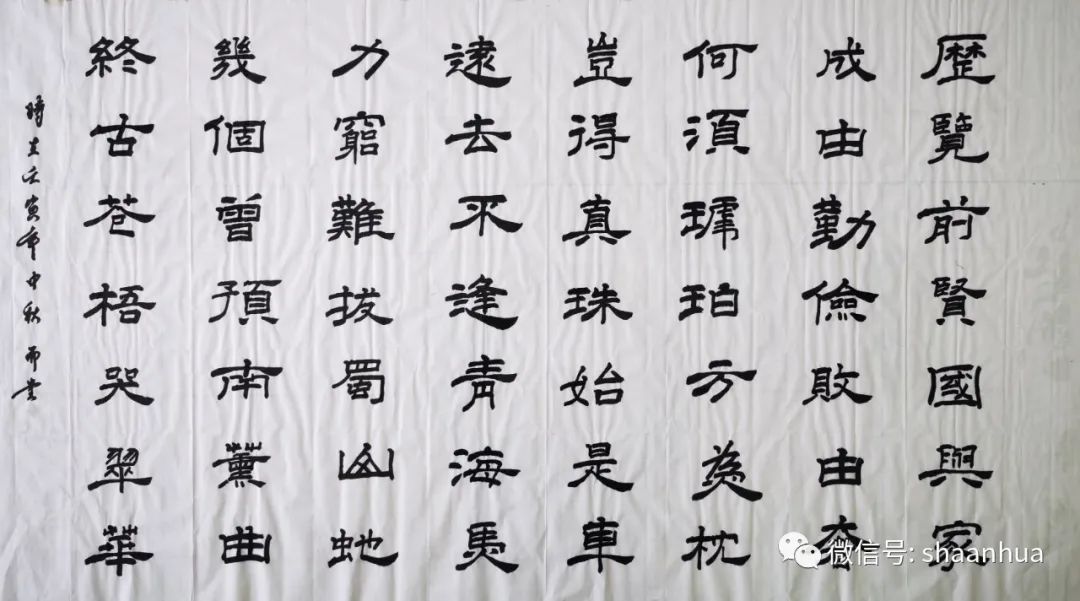 歷覽前賢國與家
成由勤儉敗由奢
何須琥珀方為枕
豈得真珠始是車
逮去不逢青海馬
力窮難拔蜀山蛇
幾個曾預南薰曲
終古苍梧哭翠華
時在壬寅年中秋
微信号: shaanhua